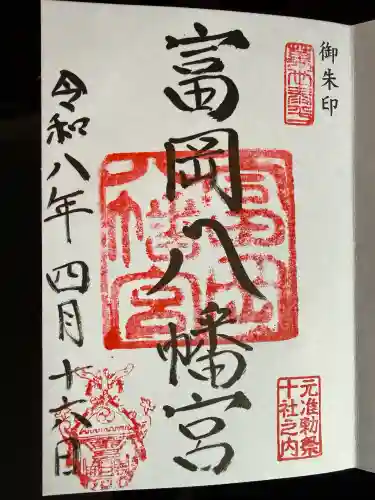 御朱印
富岡八幡宮
富岡八幡宮
元准勅祭
十社之内
令和八年四月十六日